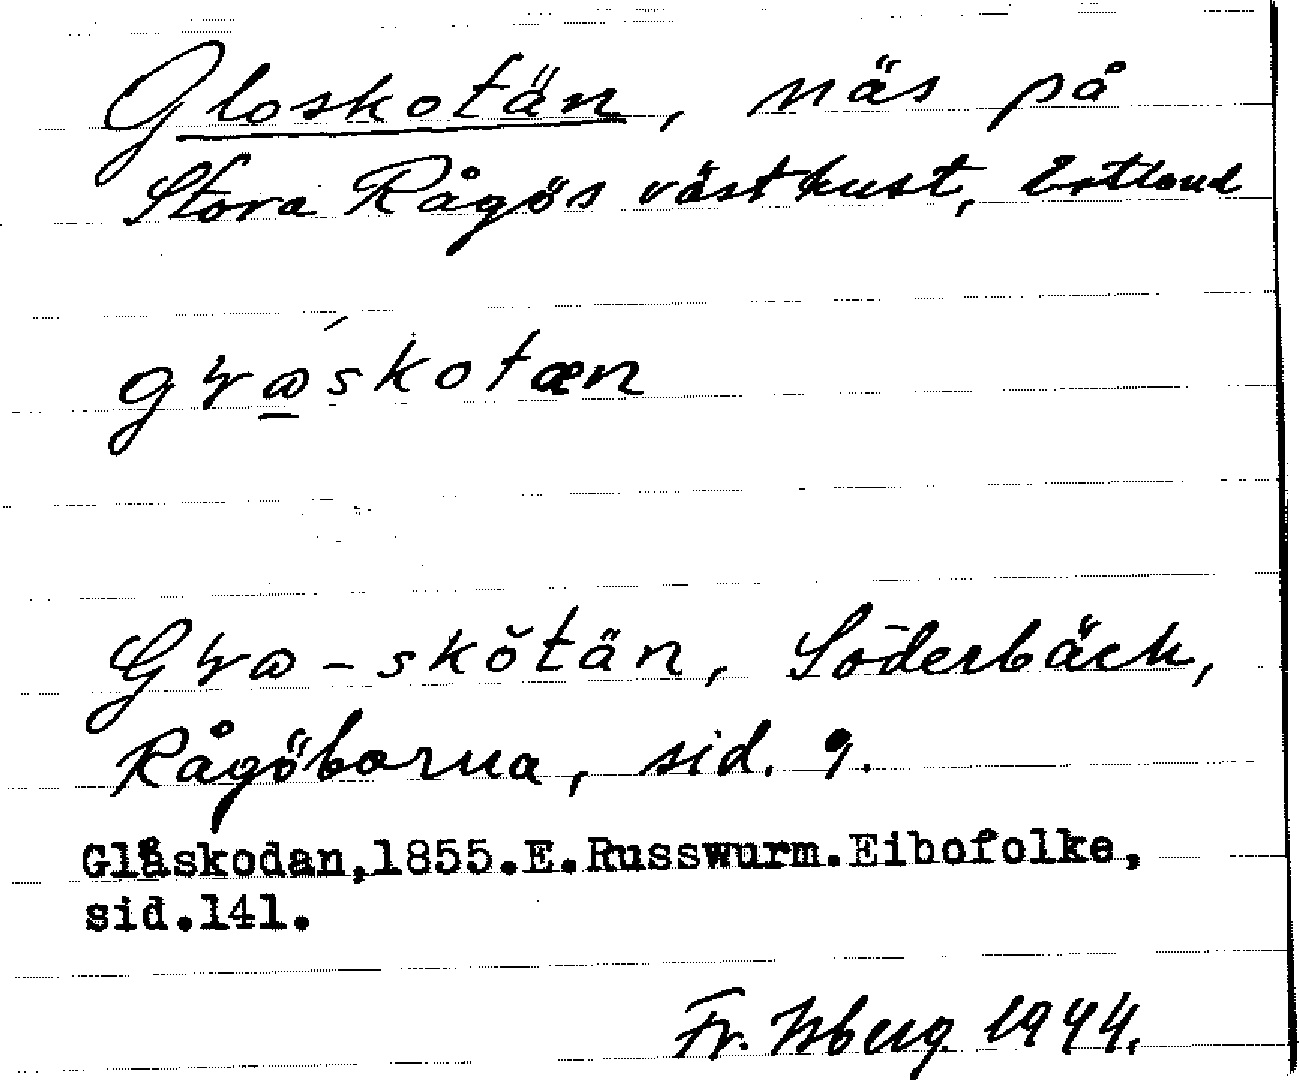 Gloskotän, näs på
Stora Rågös västkust, Estland
gɽ@́skotæn
Gɽ@-skŏtän, Söderbäck,
Rågöborna, sid. 9.
Glåskodan,1855.E.Russwurm.Eibofolke,
sid.141.
Fr. Isberg 1944.